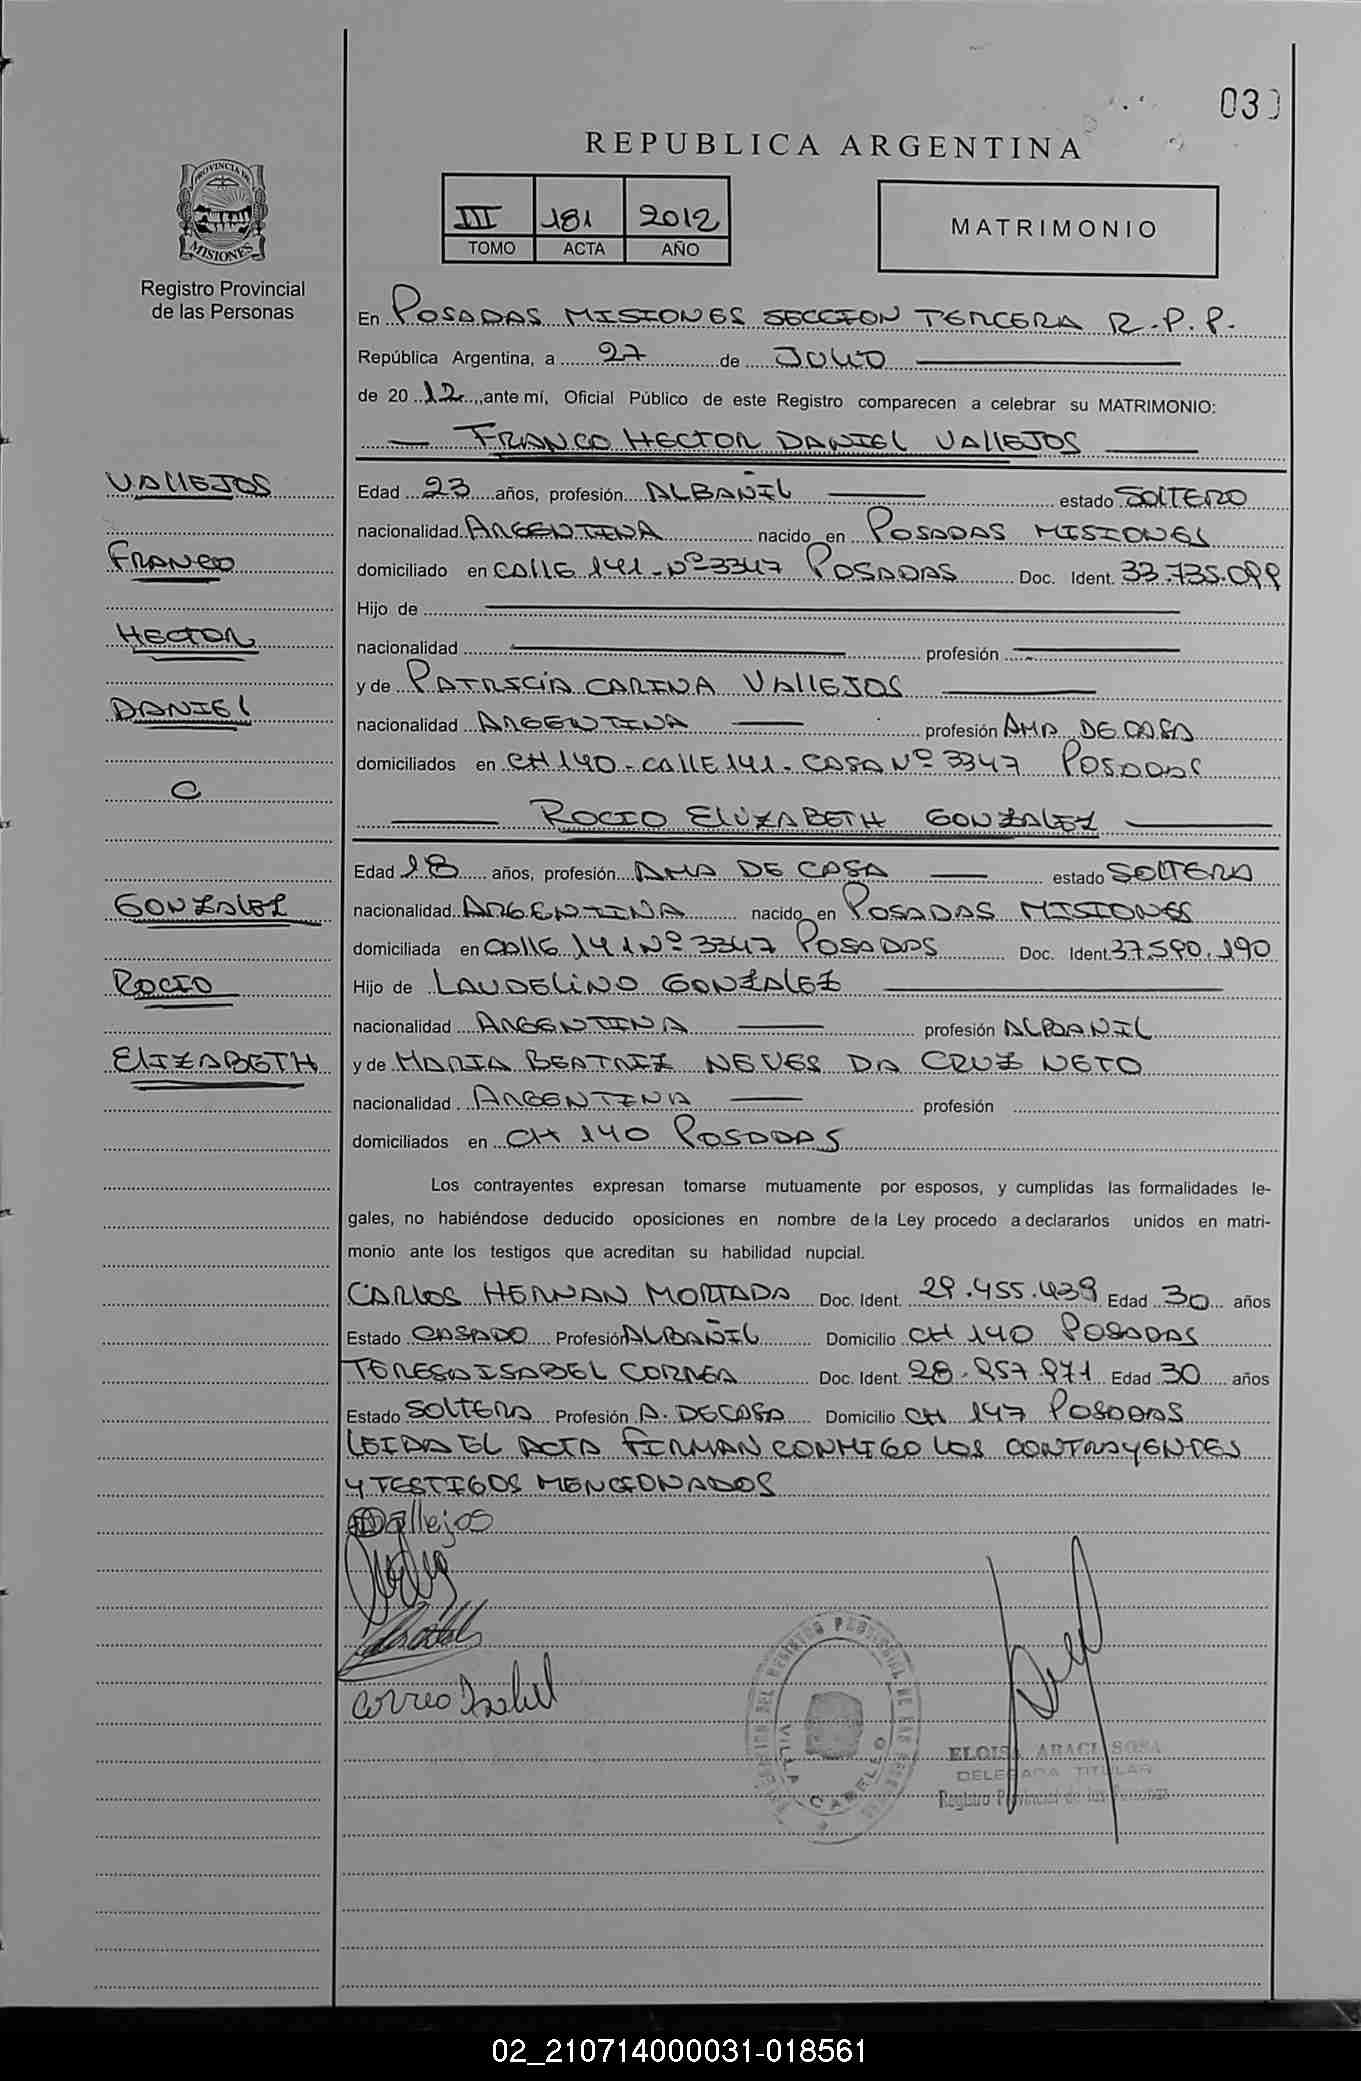 03
REPUBLICA ARGENTINA
III 181 2012
TOMO ACTA AÑO
MATRIMONIO
PROVINCIA DE
MISIONES
Registro Provincial
de las Personas
En POSADAS MISIONES SECCION TERCERA R.P.P.
República Argentina, a 27 de JULIO
de 20 12, ante mí, Oficial Público de este Registro comparecen a celebrar su MATRIMONIO:
FRANCO HECTOR DANIEL VALLEJOS
VALLEJOS
FRANCO
HECTOR
DANIEL
C
GONZALEZ
ROCIO
ELIZABETH
Edad 23 años, profesión ALBAÑIL estado SOLTERO
nacionalidad ARGENTINA nacido en POSADAS MISIONES
domiciliado en CALLE 141-Nº3347 POSADAS Doc. Ident. 33.735.099
Hijo de
nacionalidad profesión
y de PATRICIA CARINA VALLEJOS
nacionalidad ARGENTINA profesión AMA DE CASA
domiciliados en CH 140-CALLE 141-CASA Nº 3347 POSADAS
ROCIO ELIZABETH GONZALEZ
Edad 18 años, profesión AMA DE CASA estado SOLTERA
nacionalidad ARGENTINA nacido en POSADAS MISIONES
domiciliada en CALLE 141 Nº 3347 POSADAS Doc. Ident. 37.590.190
Hijo de LAUDELINO GONZALEZ
nacionalidad ARGENTINA profesión ALBANIL
y de MARIA BEATRIZ NEVES DA CRUZ NETO
nacionalidad ARGENTINA profesión
domiciliados en CH 140 POSADAS
Los contrayentes expresan tomarse mutuamente por esposos, y cumplidas las formalidades le-
gales, no habiéndose deducido oposiciones en nombre de la Ley procedo a declararlos unidos en matri-
monio ante los testigos que acreditan su habilidad nupcial.
CARLOS HERNAN MORTADA Doc. Ident. 29.455.439 Edad 30 años
Estado CASADO Profesión ALBAÑIL Domicilio CH 140 POSADAS
TERESA ISABEL CORREA Doc. Ident. 28.957.971 Edad 30 años
Estado SOLTERA Profesión A. DE CASA Domicilio CH 147 POSADAS
LEIDA EL ACTA FIRMAN CONMIGO LOS CONTRAYENTES
Y TESTIGOS MENCIONADOS
Vallejos
Correa Isabel
VILLA CABELLO
ELOISA ARACI SOSA
DELEGADA TITULAR
Registro Provincial de las Personas
02_210714000031-018561